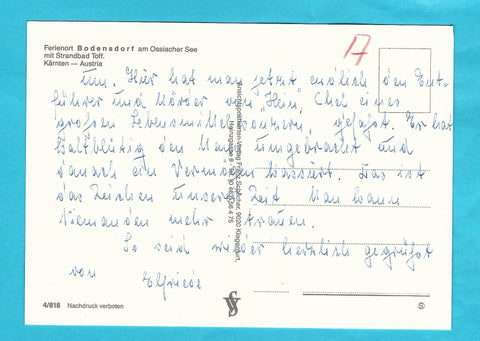 Ferienort Bodensdorf am Ossiacher See
mit Strandbad Toff.
Kärnten — Austria
17
tun. Hier hat man jetzt endlich den Ent-
führer und Mörder von "Hein", Chef eines
großen Lebensmittelkonzern, gefaßt. Er hat
kaltblütig den Mann umgebracht und
danach ein Vermögen kassiert. Das ist
das Zeichen unserer Zeit. Man kann
Niemanden mehr trauen.
So seid wieder herzlich gegrüßt
von Elfriede
4/818 Nachdruck verboten